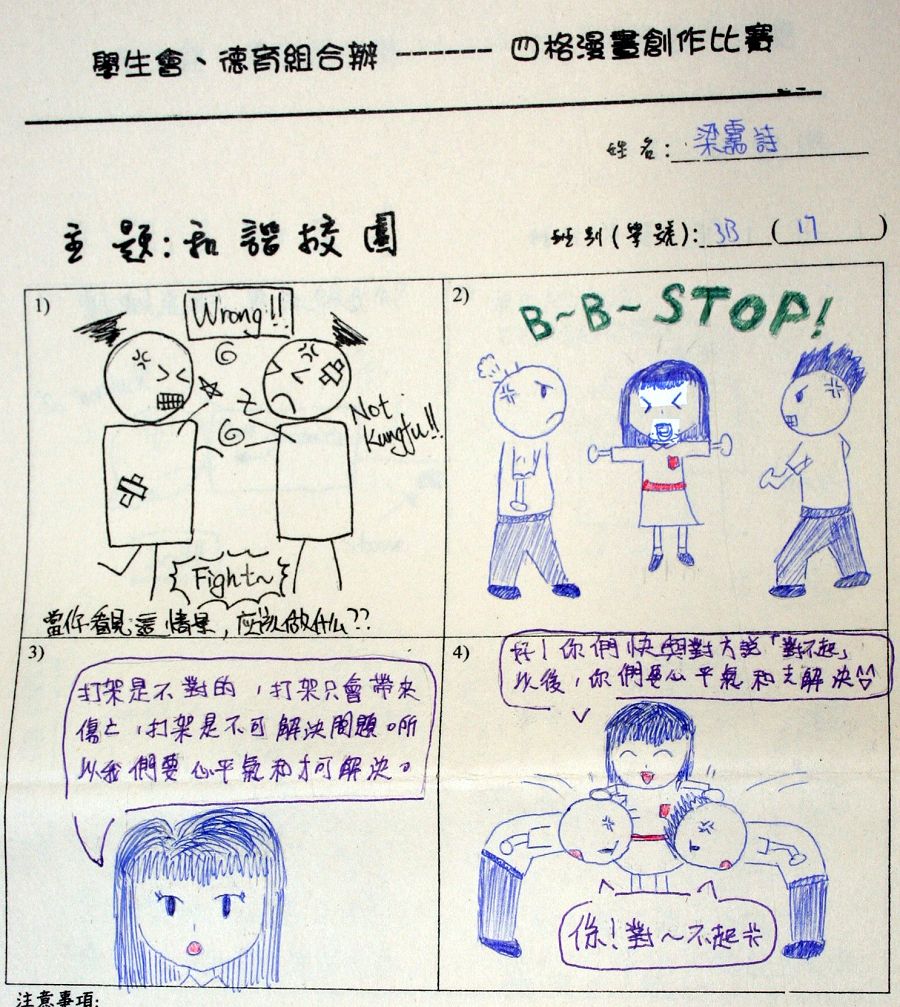 學生會、德育組合辦 ------ 四格漫畫創作比賽
姓名: 梁靄詩
主題:和諧校園
班別(學號): 3B (17)
1)
Wrong!!
Not
Kungfu!!
Fight~
當你看見這情景,應該做什么??
2)
B~B~STOP!
3)
打架是不對的,打架只會帶來
傷亡,打架是不可解決問題。所
以我們要心平氣和才可解決。
4)
好!你們快與對方說「對不起」
以後,你們要心平氣和去解決^^
係!對~不起
注意事項: